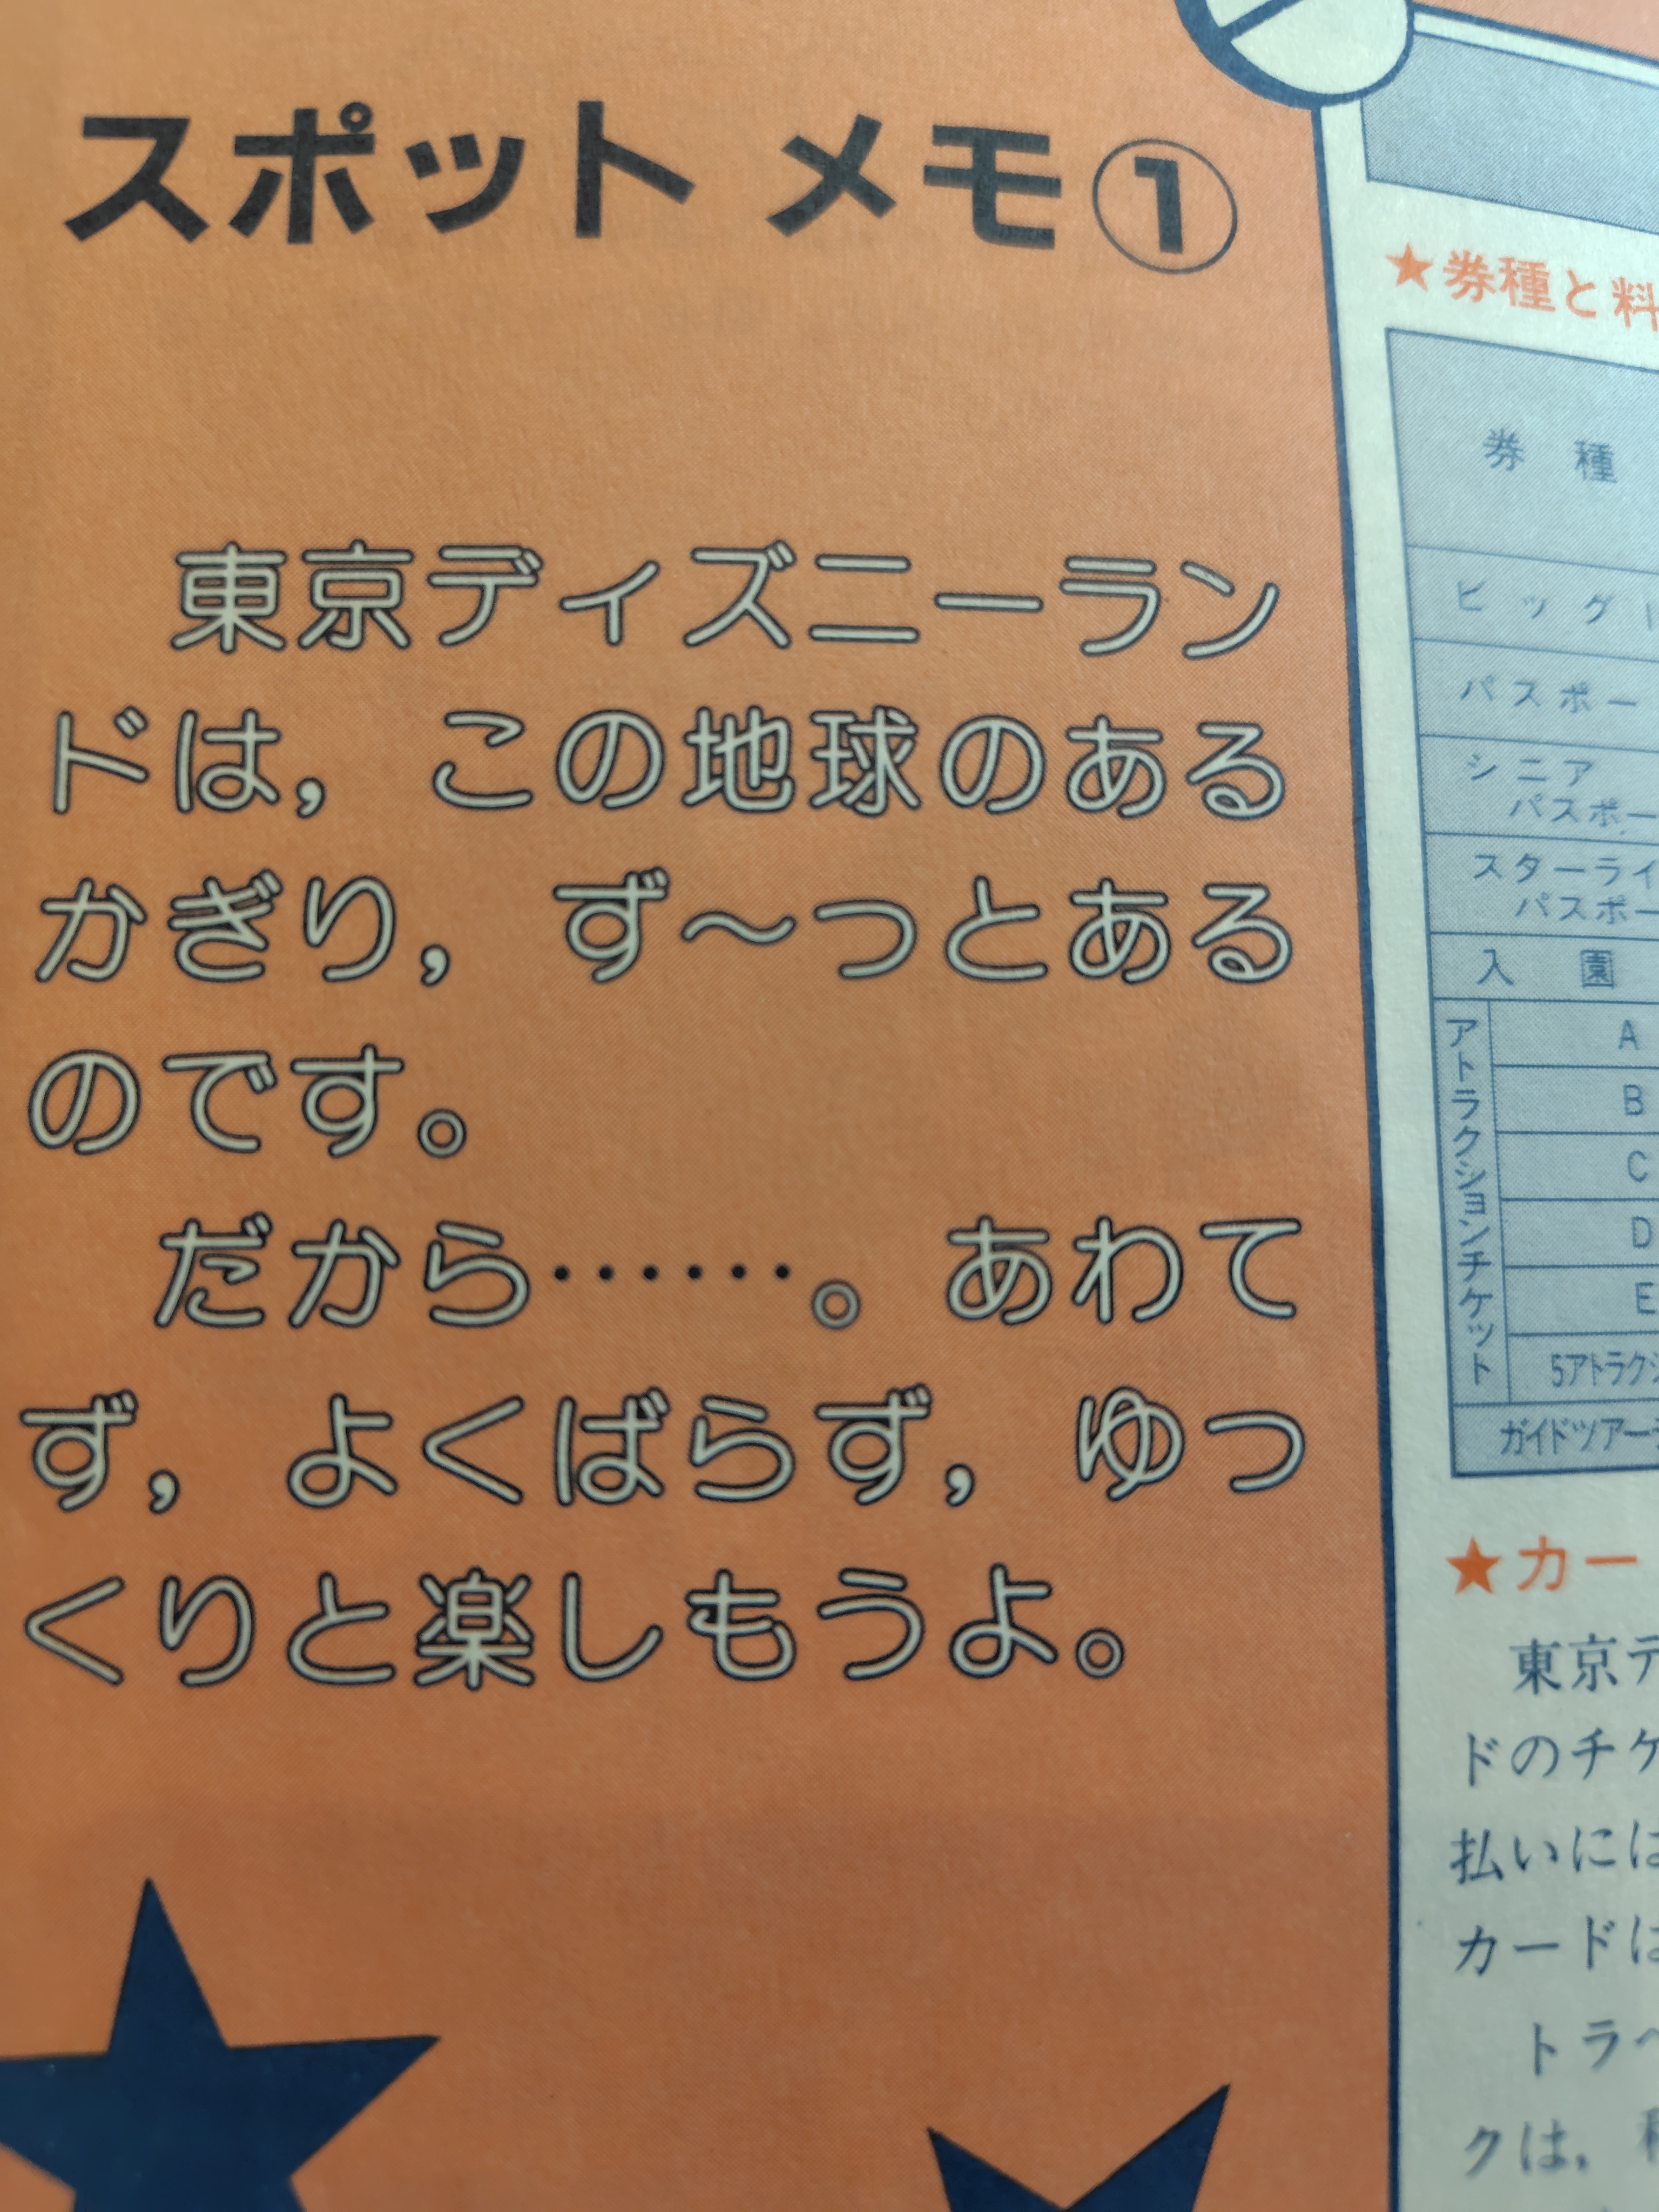 スポット メモ①
東京ディズニーラン
ドは，この地球のある
かぎり，ず～っとある
のです。
だから……。あわて
ず，よくばらず，ゆっ
くりと楽しもうよ。
★券種と料
券種
ビッグ
パスポー
シニア
パスポー
スターライ
パスポー
入園
アトラクションチケット
A
B
C
D
E
5アトラクシ
ガイドツアー
★カー
東京デ
ドのチケ
払いには
カードは
トラベ
クは，